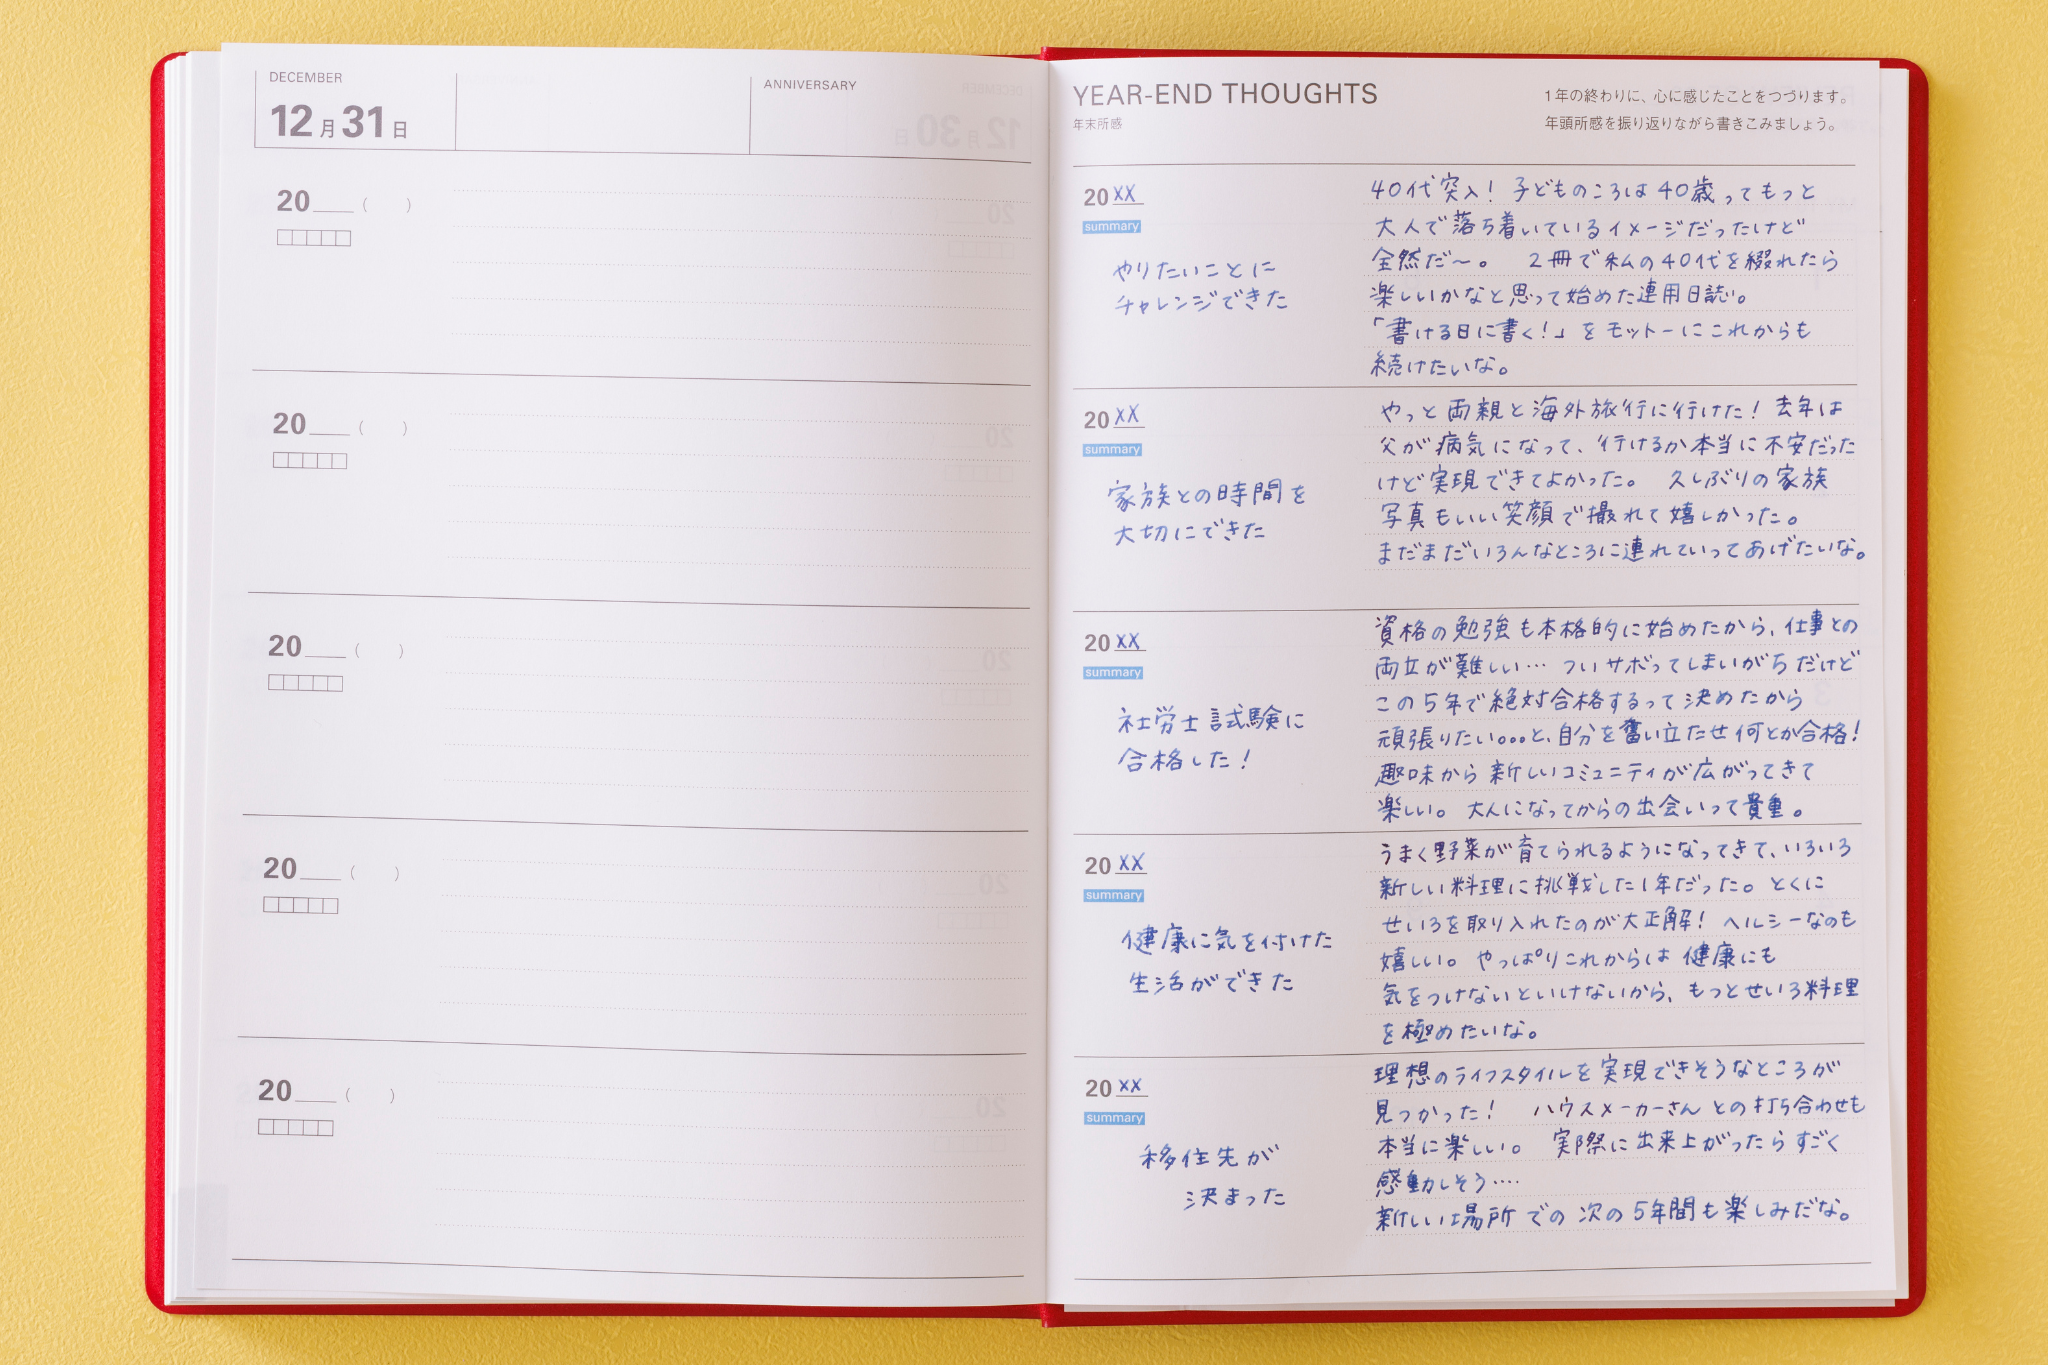 DECEMBER
12月31日
ANNIVERSARY
20 ( )
20 ( )
20 ( )
20 ( )
20 ( )
YEAR-END THOUGHTS
年末所感
1年の終わりに、心に感じたことをつづります。
年頭所感を振り返りながら書きこみましょう。
20XX
summary
やりたいことに
チャレンジできた
40代突入！子どものころは40歳ってもっと
大人で落ち着いているイメージだったけど
全然だ〜。 2冊で私の40代を綴れたら
楽しいかなと思って始めた連用日誌。
「書ける日に書く！」をモットーにこれからも
続けたいな。
20XX
summary
家族との時間を
大切にできた
やっと両親と海外旅行に行けた！去年は
父が病気になって、行けるか本当に不安だった
けど実現できてよかった。 久しぶりの家族
写真もいい笑顔で撮れて嬉しかった。
まだまだいろんなところに連れていってあげたいな。
20XX
summary
社労士試験に
合格した！
資格の勉強も本格的に始めたから、仕事との
両立が難しい… ついサボってしまいがちだけど
この5年で絶対合格するって決めたから
頑張りたい。。。と、自分を奮い立たせ何とか合格！
趣味から新しいコミュニティが広がってきて
楽しい。 大人になってからの出会いって貴重。
20XX
summary
健康に気を付けた
生活ができた
うまく野菜が育てられるようになってきて、いろいろ
新しい料理に挑戦した1年だった。とくに
せいろを取り入れたのが大正解！ ヘルシーなのも
嬉しい。やっぱりこれからは健康にも
気をつけないといけないから、もっとせいろ料理
を極めたいな。
20XX
summary
移住先が
決まった
理想のライフスタイルを実現できそうなところが
見つかった！ ハウスメーカーさんとの打ち合わせも
本当に楽しい。 実際に出来上がったらすごく
感動しそう‥‥
新しい場所での次の5年間も楽しみだな。